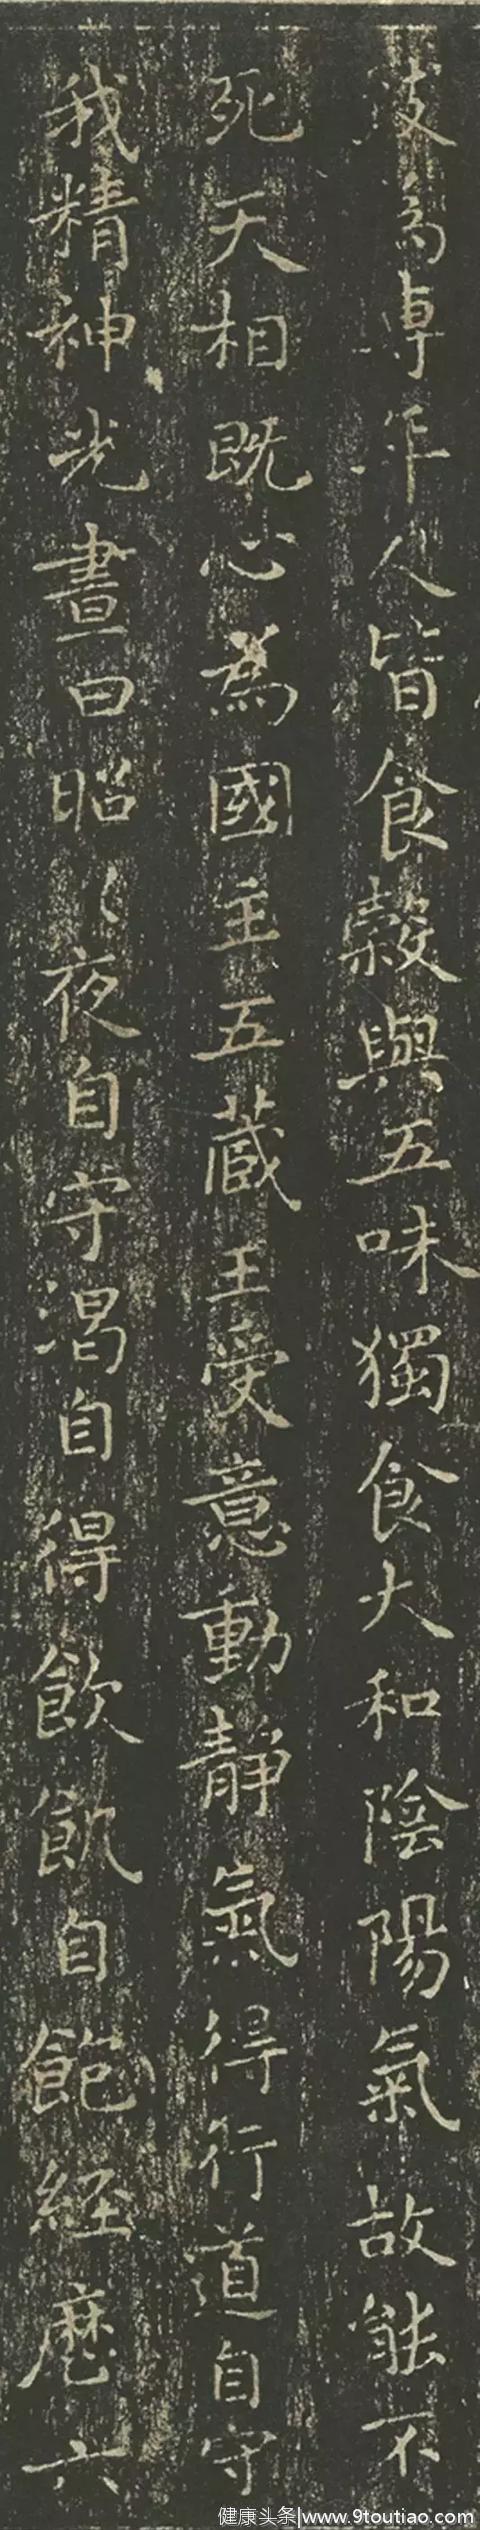 致為專年人皆食穀與五味獨食大和陰陽氣故能不
死天相既心為國主五藏王受意動靜氣得行道自守
我精神光晝日昭〻夜自守渴自得飲飢自飽經歷六
健康头条|www.9toutiao.com